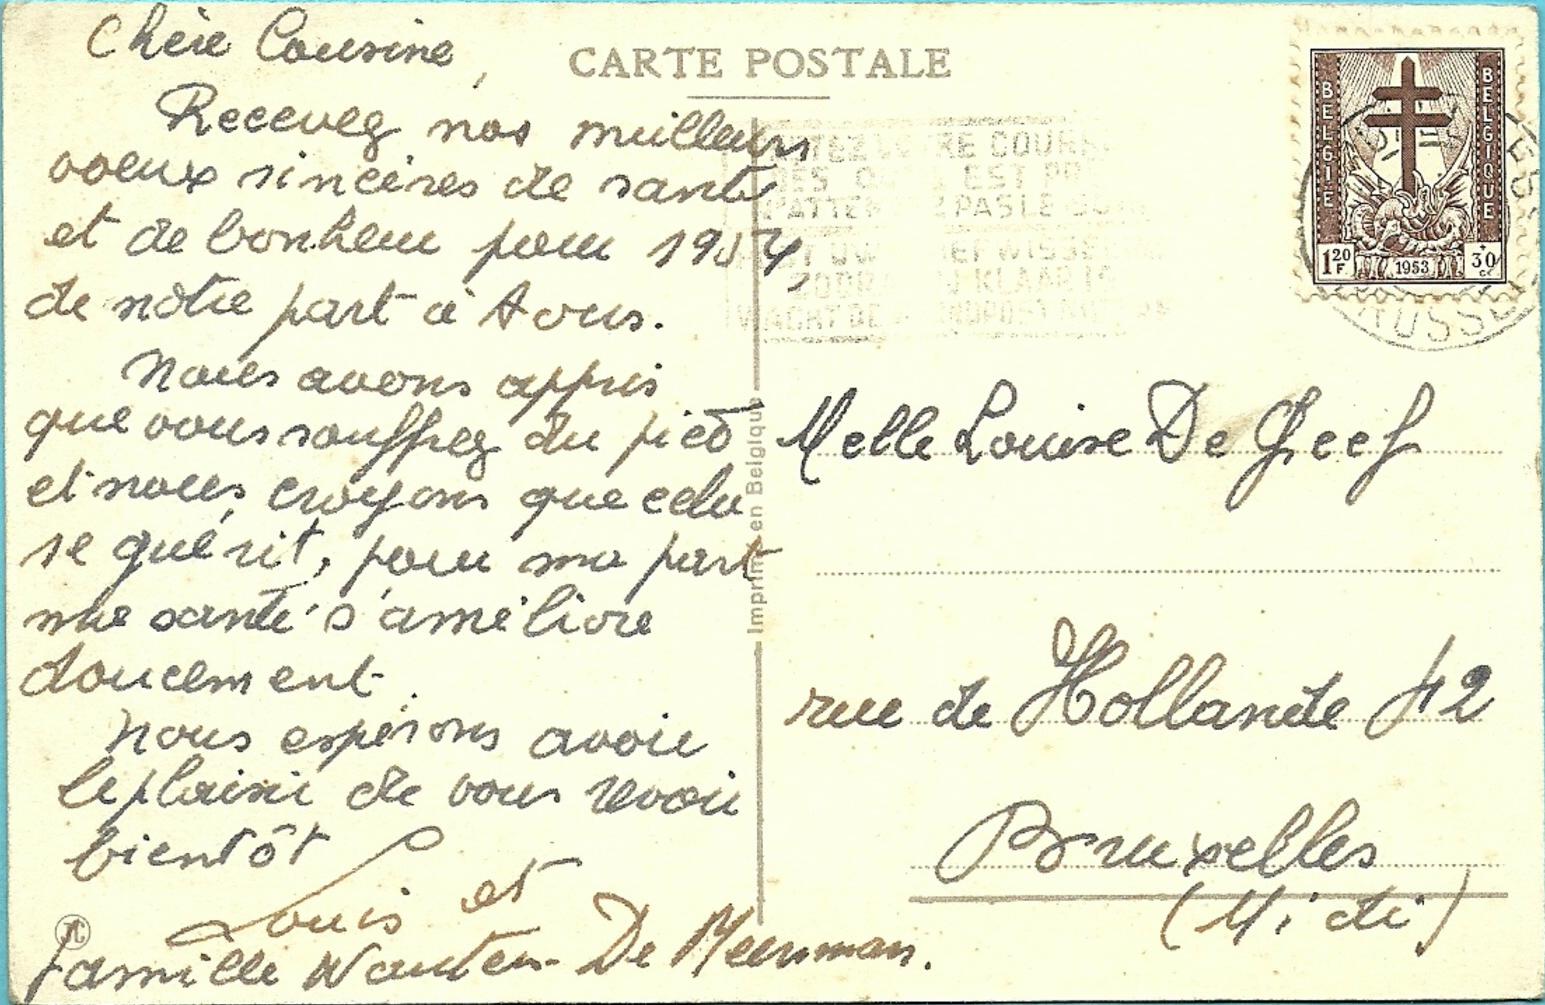 Chère Cousine,
Recevez nos meilleurs
voeux sincères de santé
et de bonheur pour 1954,
de notre part à tous.
Nous avons appris
que vous souffrez du pied
et nous croyons que cela
se guérit, pour ma part
ma santé s'améliore
doucement.
Nous espérons avoir
le plaisir de vous revoir
bientôt
Louis et
famille Wauters-De Meersman.
JC
CARTE POSTALE
Imprimé en Belgique
VOTRE COURR
DES QU'IL EST PR
N'ATTENDEZ PAS LE
ZODRA KLAAR IS
WACHT DE AVONDPOST
BELGIE
BELGIQUE
1 20 F
1953
+ 30 c
Melle Louise De Greef
rue de Hollande 42
Bruxelles
(Midi)